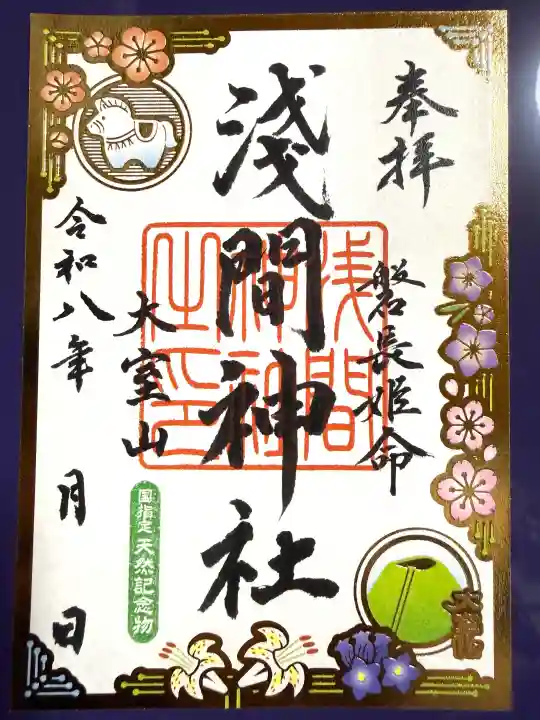 奉拝
磐長姫命
淺間神社
浅間
神社
之印
大室山
国指定 天然記念物
令和八年 月 日
大室山